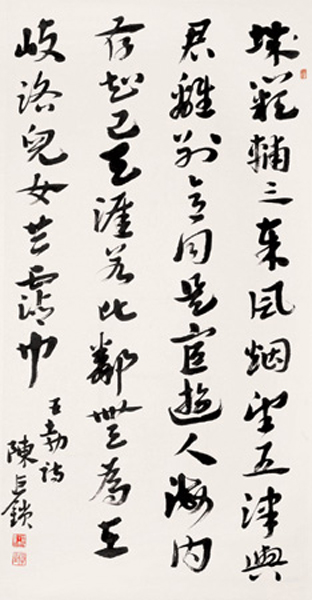 城闕輔三秦風烟望五津與
君離別意同是宦遊人海内
存知己天涯若比鄰無為在
岐路兒女共霑巾
王勃詩
陳巨鎖